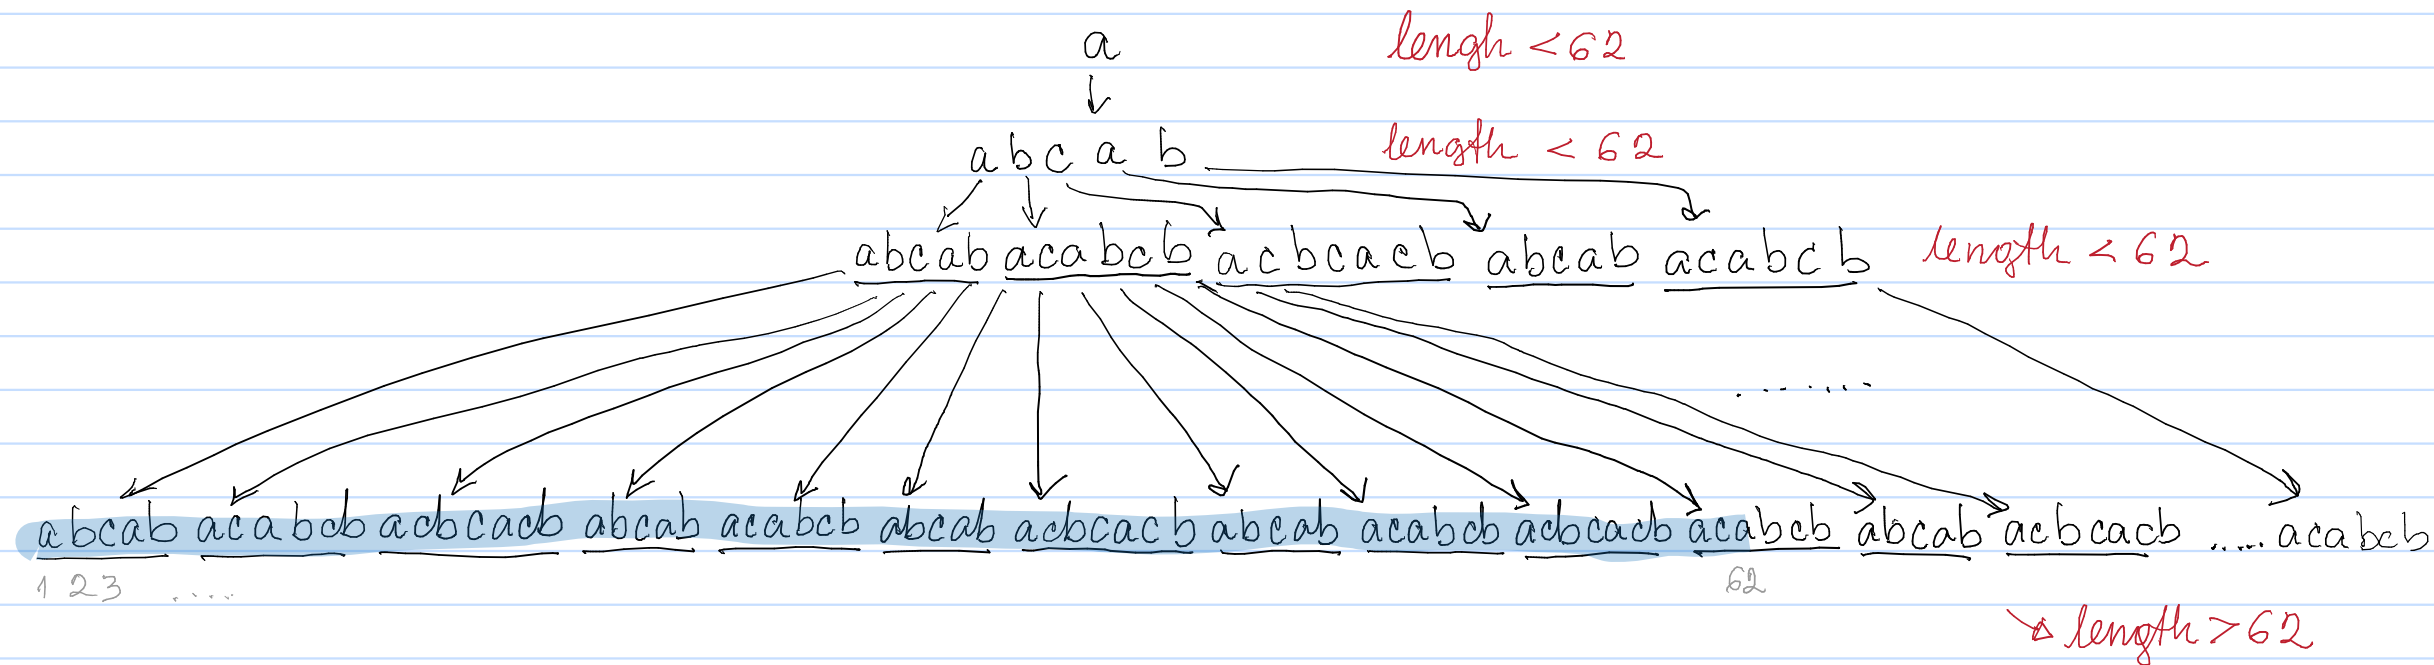 a lengh < 62
a b c a b length < 62
abcab acabcb acbcacb abcab acabcb length < 62
.......
abcab acabcb acbcacb abcab acabcb abcab acbcacb abcab acabcb acbcacb acabcb abcab acbcacb ..... acabcb
1 2 3 ..... 62
length > 62